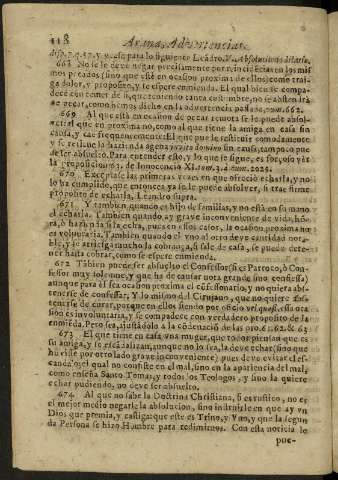 118 Arana, Advertencias
disp. 7. q. 37. y v. ase para lo siguiente Leãdro, V. Absolutionis dilatio.
668 No se le deve negar precisamente por reincidēcias en los mismos
pecados (sino que esté en ocasion proxima de ellos) como traiga
dolor, y proposito, y se espere enmienda. El qual bien se compadece
con temer de si, que teniendo tanta costumbre, no se abstendrà
de pecar, como hemos dicho en la advertencia passada, num. 662.
669 Al que está en ocasion de pecar remota se le puede absolver;
al que en proxima no, como al que tiene la amiga en casa sin
causa, y cae frequentemente: El que puede restituir comodamente
y se retiene la hazienda agena invito domino sin causa, tampoco puede
ser absuelto. Para entender esto, y lo que se sigue, es forçoso vèr
la proposicion 63. de Innocencio XI. num. 3. à num. 2025.
670 Exceptase las primeras vezes en que ofreciò echarla, y no
lo ha cumplido, que entonces ya se le puede absolver, si trae firme
proposito de echarla, Leandro supra.
671 Y tambien quando es hijo de familias, y no está en su mano
el echarla. Tambien quando ay grave inconveniente de vida, hõra,
ò hazienda si la echa, pues en estos casos, la ocasion proxima no
es voluntaria. Tambien quando el vno al otro deve cantidad notable,
y se arriesga mucho la cobrança, si sale de casa, se puede detener
hasta cobrar, como se espere enmienda.
672 Tãbien puede ser absuelto el Confessor (si es Parroco, ò Confessor
muy insigne, y que ha de causar nota grande sino confiessa)
aunque para él sea ocasion proxima el cõfessionario, y no quiera abstenerse
de confessar. Y lo mismo del Cirujano, que no quiere abstenerse
de curar, porque en ellos siendo por oficio vel quasi, essa ocasion
es involuntaria, y se compadece con verdadero proposito de la
enmiēda. Pero sea, ajustãdolo à la cōdenacion de las pro. 61. 62. & 63
673 El que tiene en casa vna muger, que todos piensan que es
su amiga, y se escãdalizan, aunque no lo sea, la deve echar (sino que
huviesse por otro lado grave inconveniente) pues deve evitar el escandalo,
el qual no consiste en el mal, sino en la apariencia del mal,
como enseña Santo Tomàs, y todos los Teologos, y sino la quiere
echar pudiendo, no deve ser absuelto.
674 Al que no sabe la Doctrina Christiana, si es rustico, no es
el mejor medio negarle la absolucion, sino instruirle en que ay vn
Dios que premia, y castiga: que este es Trino, y Vno, y que la segunda
Persona se hizo Hombre para redimirnos. Con esta noticia le
pue-